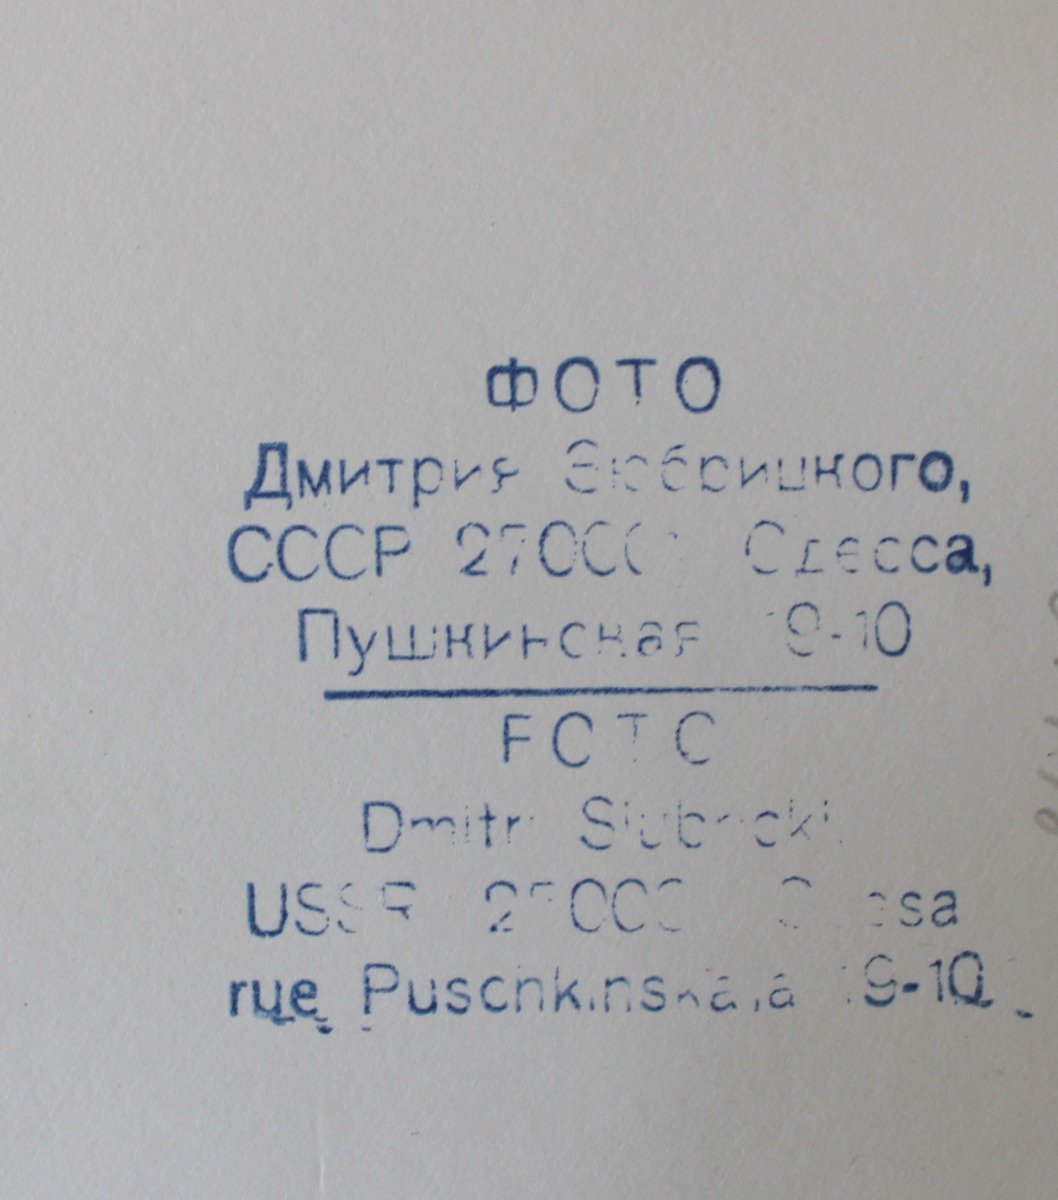 ФОТО
Дмитрия Зюбрицкого,
СССР Одесса,
Пушкинская 19-10
FOTO
Dmitri
USSR Odesa
rue Puschkinskaja 19-10